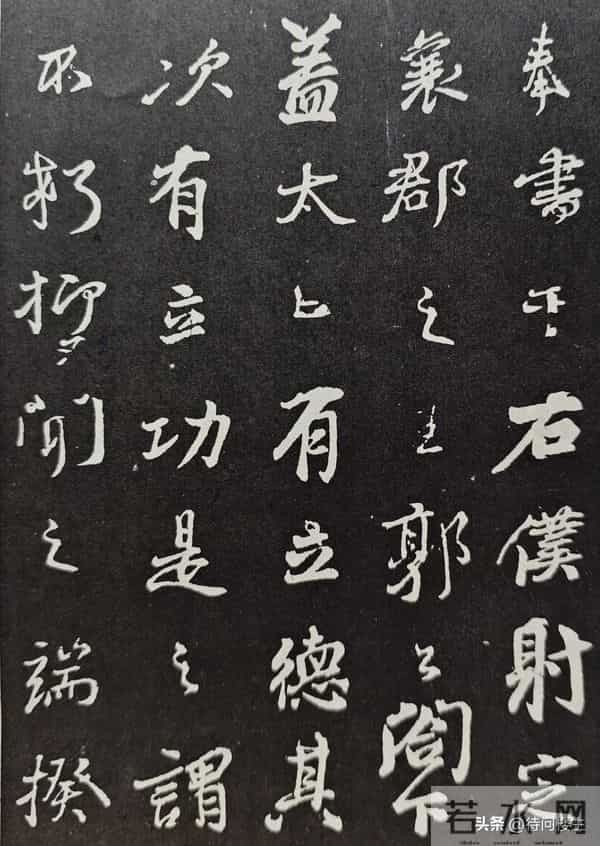 奉書于右僕射定
襄郡之王郭公閤下
蓋太上有立德其
次有立功是之謂
不朽抑又聞之端揆
若水网
头条 @待问